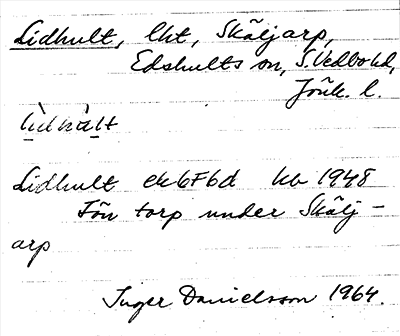 Lidhult, lht, Skäljarp,
Edshults sn, S. Vedbo hd,
Jönk. l.
Lidhult ek 6F6d kb 1948
Fön torp under Skälj-
arp
Inger Danielsson 1964.